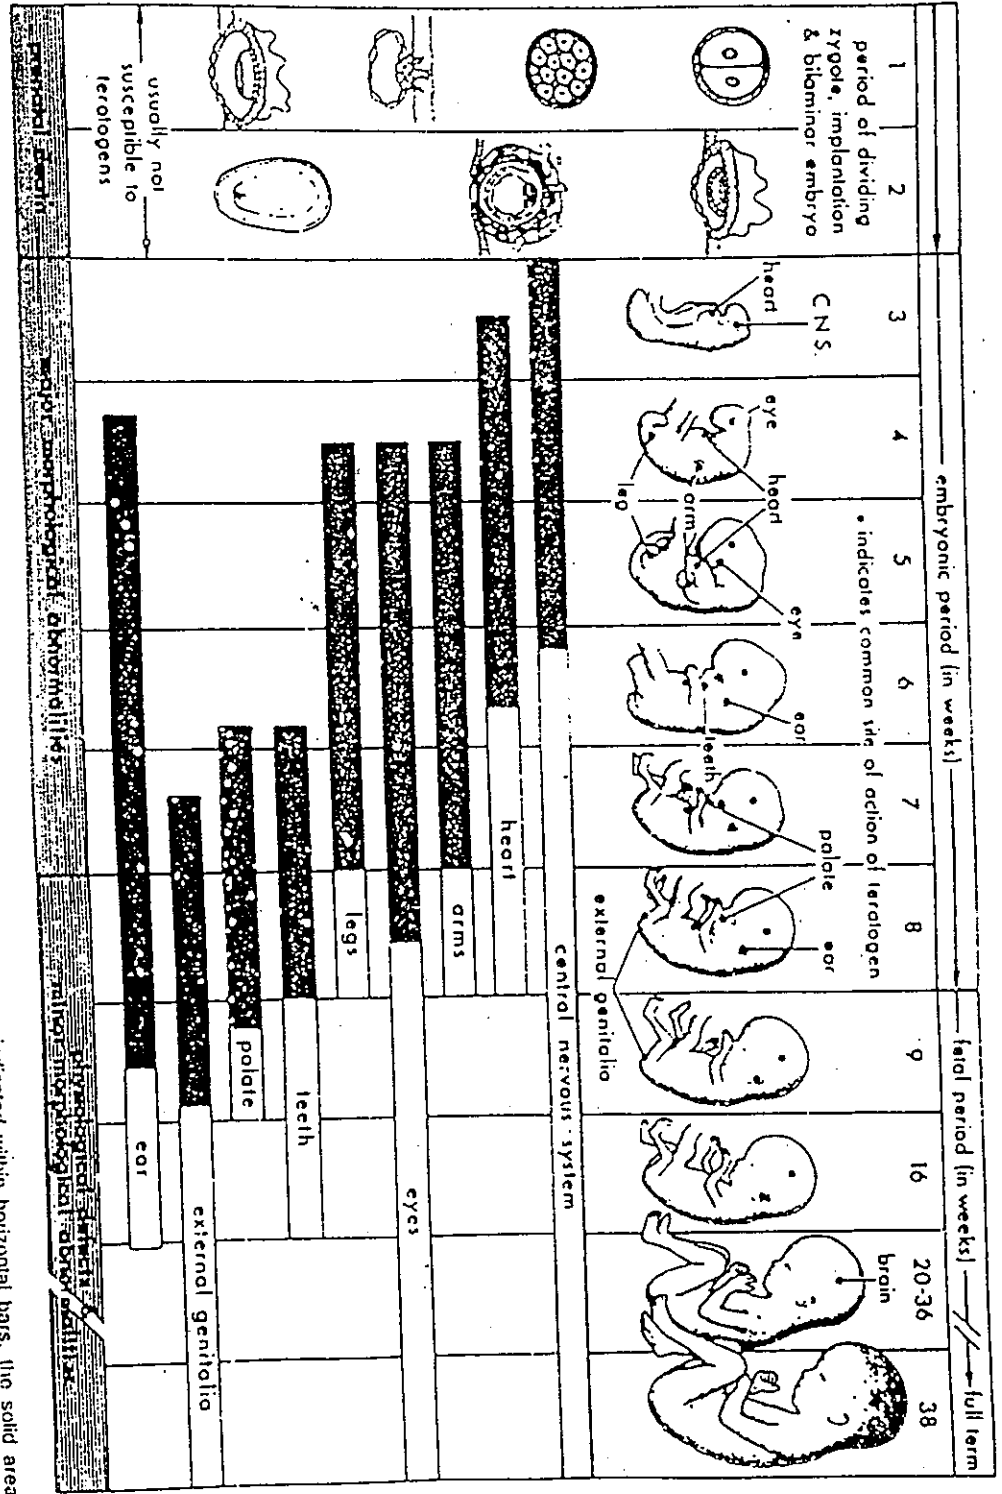 embryonic period (in weeks)
fetal period (in weeks)
full term
1
2
3
4
5
6
7
8
9
16
20-36
38
period of dividing
zygote, implantation
& bilaminar embryo
• indicates common site of action of teratogen
C N S.
heart
eye
heart
arm
leg
eye
ear
teeth
palate
ear
external genitalia
brain
central nervous system
heart
arms
eyes
legs
teeth
palate
external genitalia
ear
usually not
susceptible to
teratogens
prenatal death
major morphological abnormalities
physiological defects &
minor morphological abnormalities
indicated within horizontal bars, the solid area